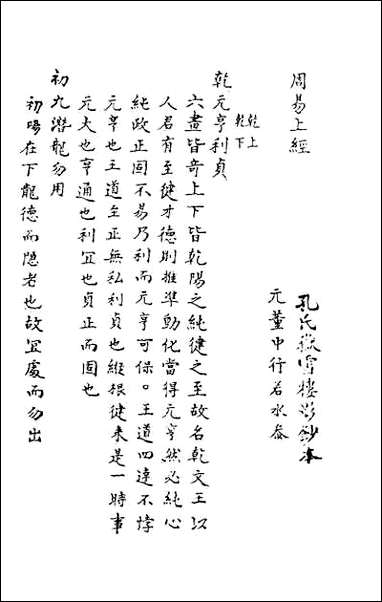 周易上經
孔氏嶽雪樓影鈔本
元董中行若水叅
乾上
乾下
乾元亨利貞
六畫皆竒上下皆乾陽之純健之至故名乾文王以
人君有至健才德則推準動化當得元亨然必純心
純政正固不易乃利而元亨可保。王道四達不悖
元亨也王道至正無私利貞也縱根健来是一時事
元大也亨通也利冝也貞正而固也
初九潛龍勿用
初陽在下龍德而隱者也故冝處而勿出